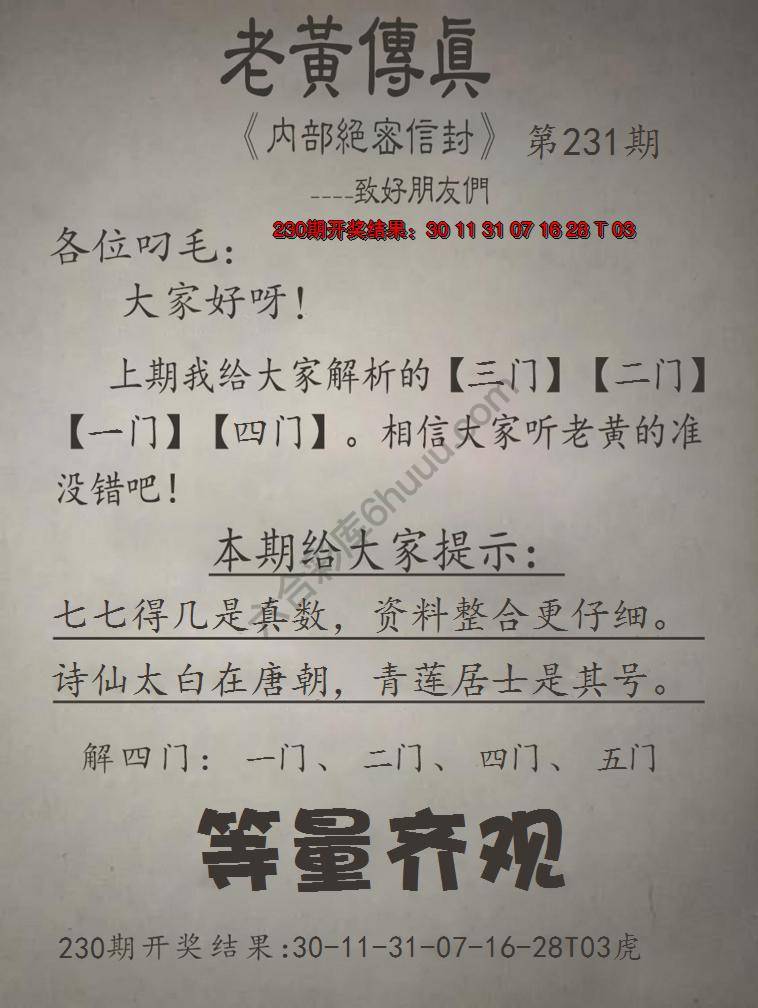 老黃傳眞
《内部絕密信封》 第231期
----致好朋友們
230期开奖结果：30 11 31 07 16 28 T 03
各位叼毛：
大家好呀！
上期我给大家解析的【三门】【二门】
【一门】【四门】。相信大家听老黄的准
没错吧！
本期给大家提示：
七七得几是真数，资料整合更仔细。
诗仙太白在唐朝，青莲居士是其号。
解四门：一门、二门、四门、五门
等量齐观
230期开奖结果:30-11-31-07-16-28T03虎
六合彩库6huuu.com